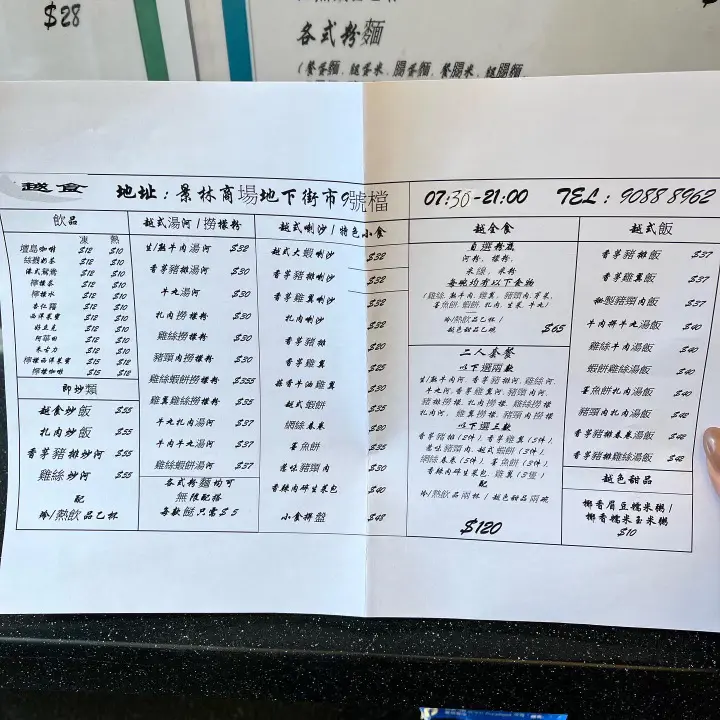 $28
各式粉麵
越食
地址：景林商場地下街市9號檔
07:30-21:00
TEL：9088 8962
飲品
凍 熱
$12 $10
絲襪奶茶 $12 $10
港式鴛鴦 $12 $10
檸檬茶 $12 $10
檸檬水 $12 $10
杏仁霜 $12 $10
西洋菜蜜 $12 $10
好立克 $12 $10
阿華田 $12 $10
朱古力 $12 $10
檸檬西洋菜蜜 $15 $12
檸檬咖啡 $15 $12
即炒類
越食炒飯 $55
扎肉炒飯 $55
香茅豬排炒河 $55
雞絲炒河 $55
配
冷/熱飲品乙杯
越式湯河/撈檬粉
生/熟牛肉湯河 $32
香茅豬排湯河 $30
牛丸湯河 $30
扎肉撈檬粉 $30
雞絲撈檬粉 $30
豬頭肉撈檬粉 $30
雞絲蝦餅撈檬粉 $355
雞翼雞絲撈檬粉 $35
牛丸扎肉湯河 $37
牛肉牛丸湯河 $37
雞絲蝦餅湯河 $37
各式粉麵均可
無限配搭
每款餸只需$5
越式喇沙/特色小食
越式大蝦喇沙 $32
香茅豬排喇沙 $32
香茅雞翼喇沙 $32
扎肉喇沙 $32
香茅豬排 $20
香茅雞翼 $25
蒜香牛油雞翼 $30
越式蝦餅 $35
網絲春卷 $20
墨魚餅 $30
惹味豬頭肉 $35
香辣肉碎生菜包 $40
小食拼盤 $48
越全食
自選粉麵
河粉，檬粉，
米線，米粉
每碗均有以下食物
冷/熱飲品乙杯/
越色甜品乙碗 $65
二人套餐
以下選兩款
生/熟牛肉河，香茅豬排河，雞絲河，
牛丸河，香茅雞翼河，豬頭肉河，
豬排撈檬，扎肉撈檬，雞絲撈檬
扎肉河，雞翼撈檬，豬頭肉撈檬
以下選三款
香茅豬排(2件)，香茅雞翼(5件)，
惹味豬頭肉，越式蝦餅(3件)，
網絲春卷(5件)，墨魚餅(3件)，
香辣肉碎生菜包，雞翼(3隻)
配
冷/熱飲品兩杯/越色甜品兩碗
$120
越式飯
香茅豬排飯 $37
香茅雞翼飯 $37
秘製豬頭肉飯 $37
牛肉拼牛丸湯飯 $40
雞絲牛肉湯飯 $40
蝦餅雞絲湯飯 $40
墨魚餅扎肉湯飯 $40
豬頭肉扎肉湯飯 $42
香茅豬排春卷湯飯 $42
香茅豬排雞絲湯飯 $42
越色甜品
椰香眉豆糯米粥/
椰香糯米玉米粥
$10